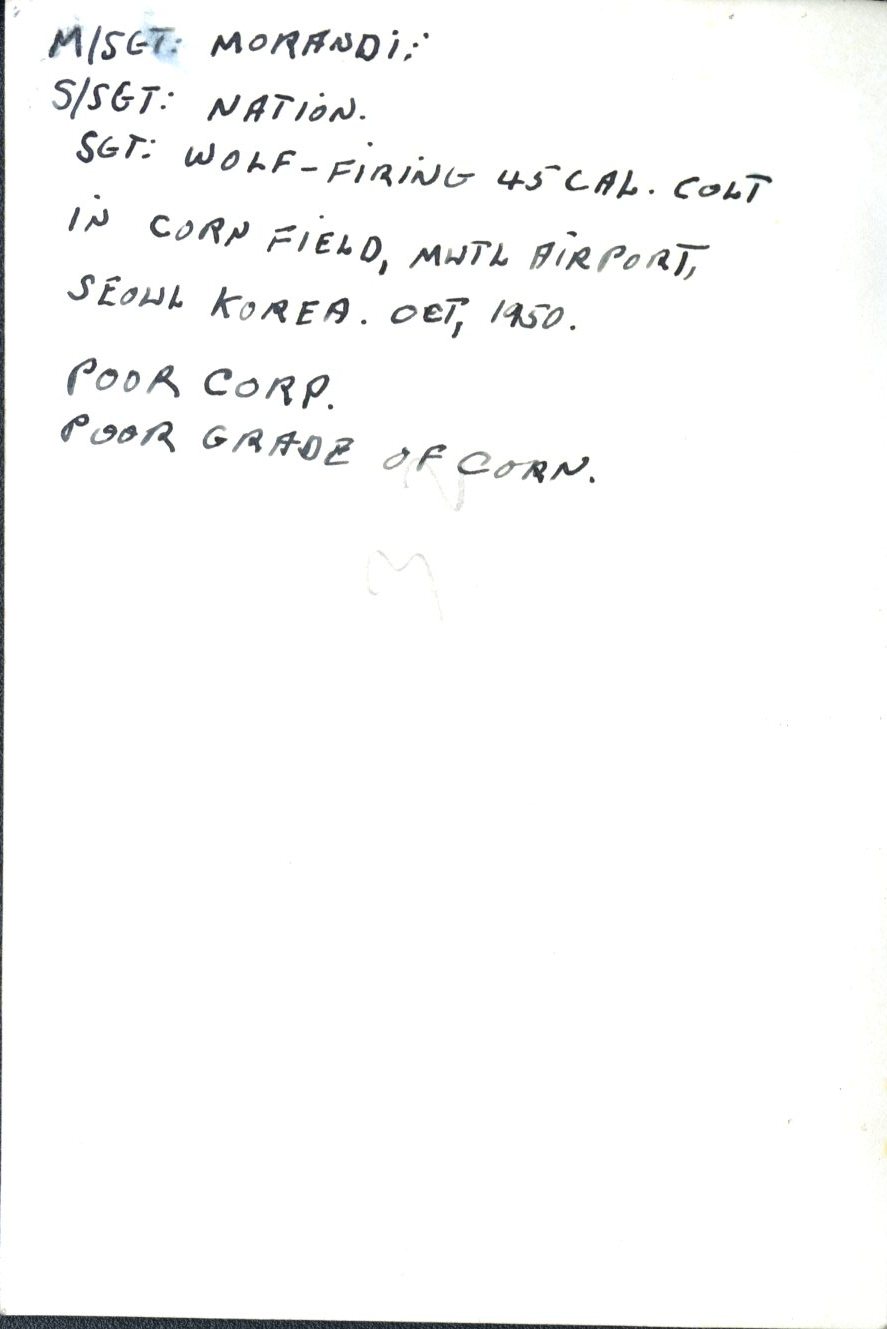 M/SGT: MORANDI;
S/SGT: NATION.
SGT: WOLF-FIRING 45 CAL. COLT
IN CORN FIELD, MUTL AIRPORT,
SEOUL KOREA. OCT, 1950.
POOR CORP.
POOR GRADE OF CORN.